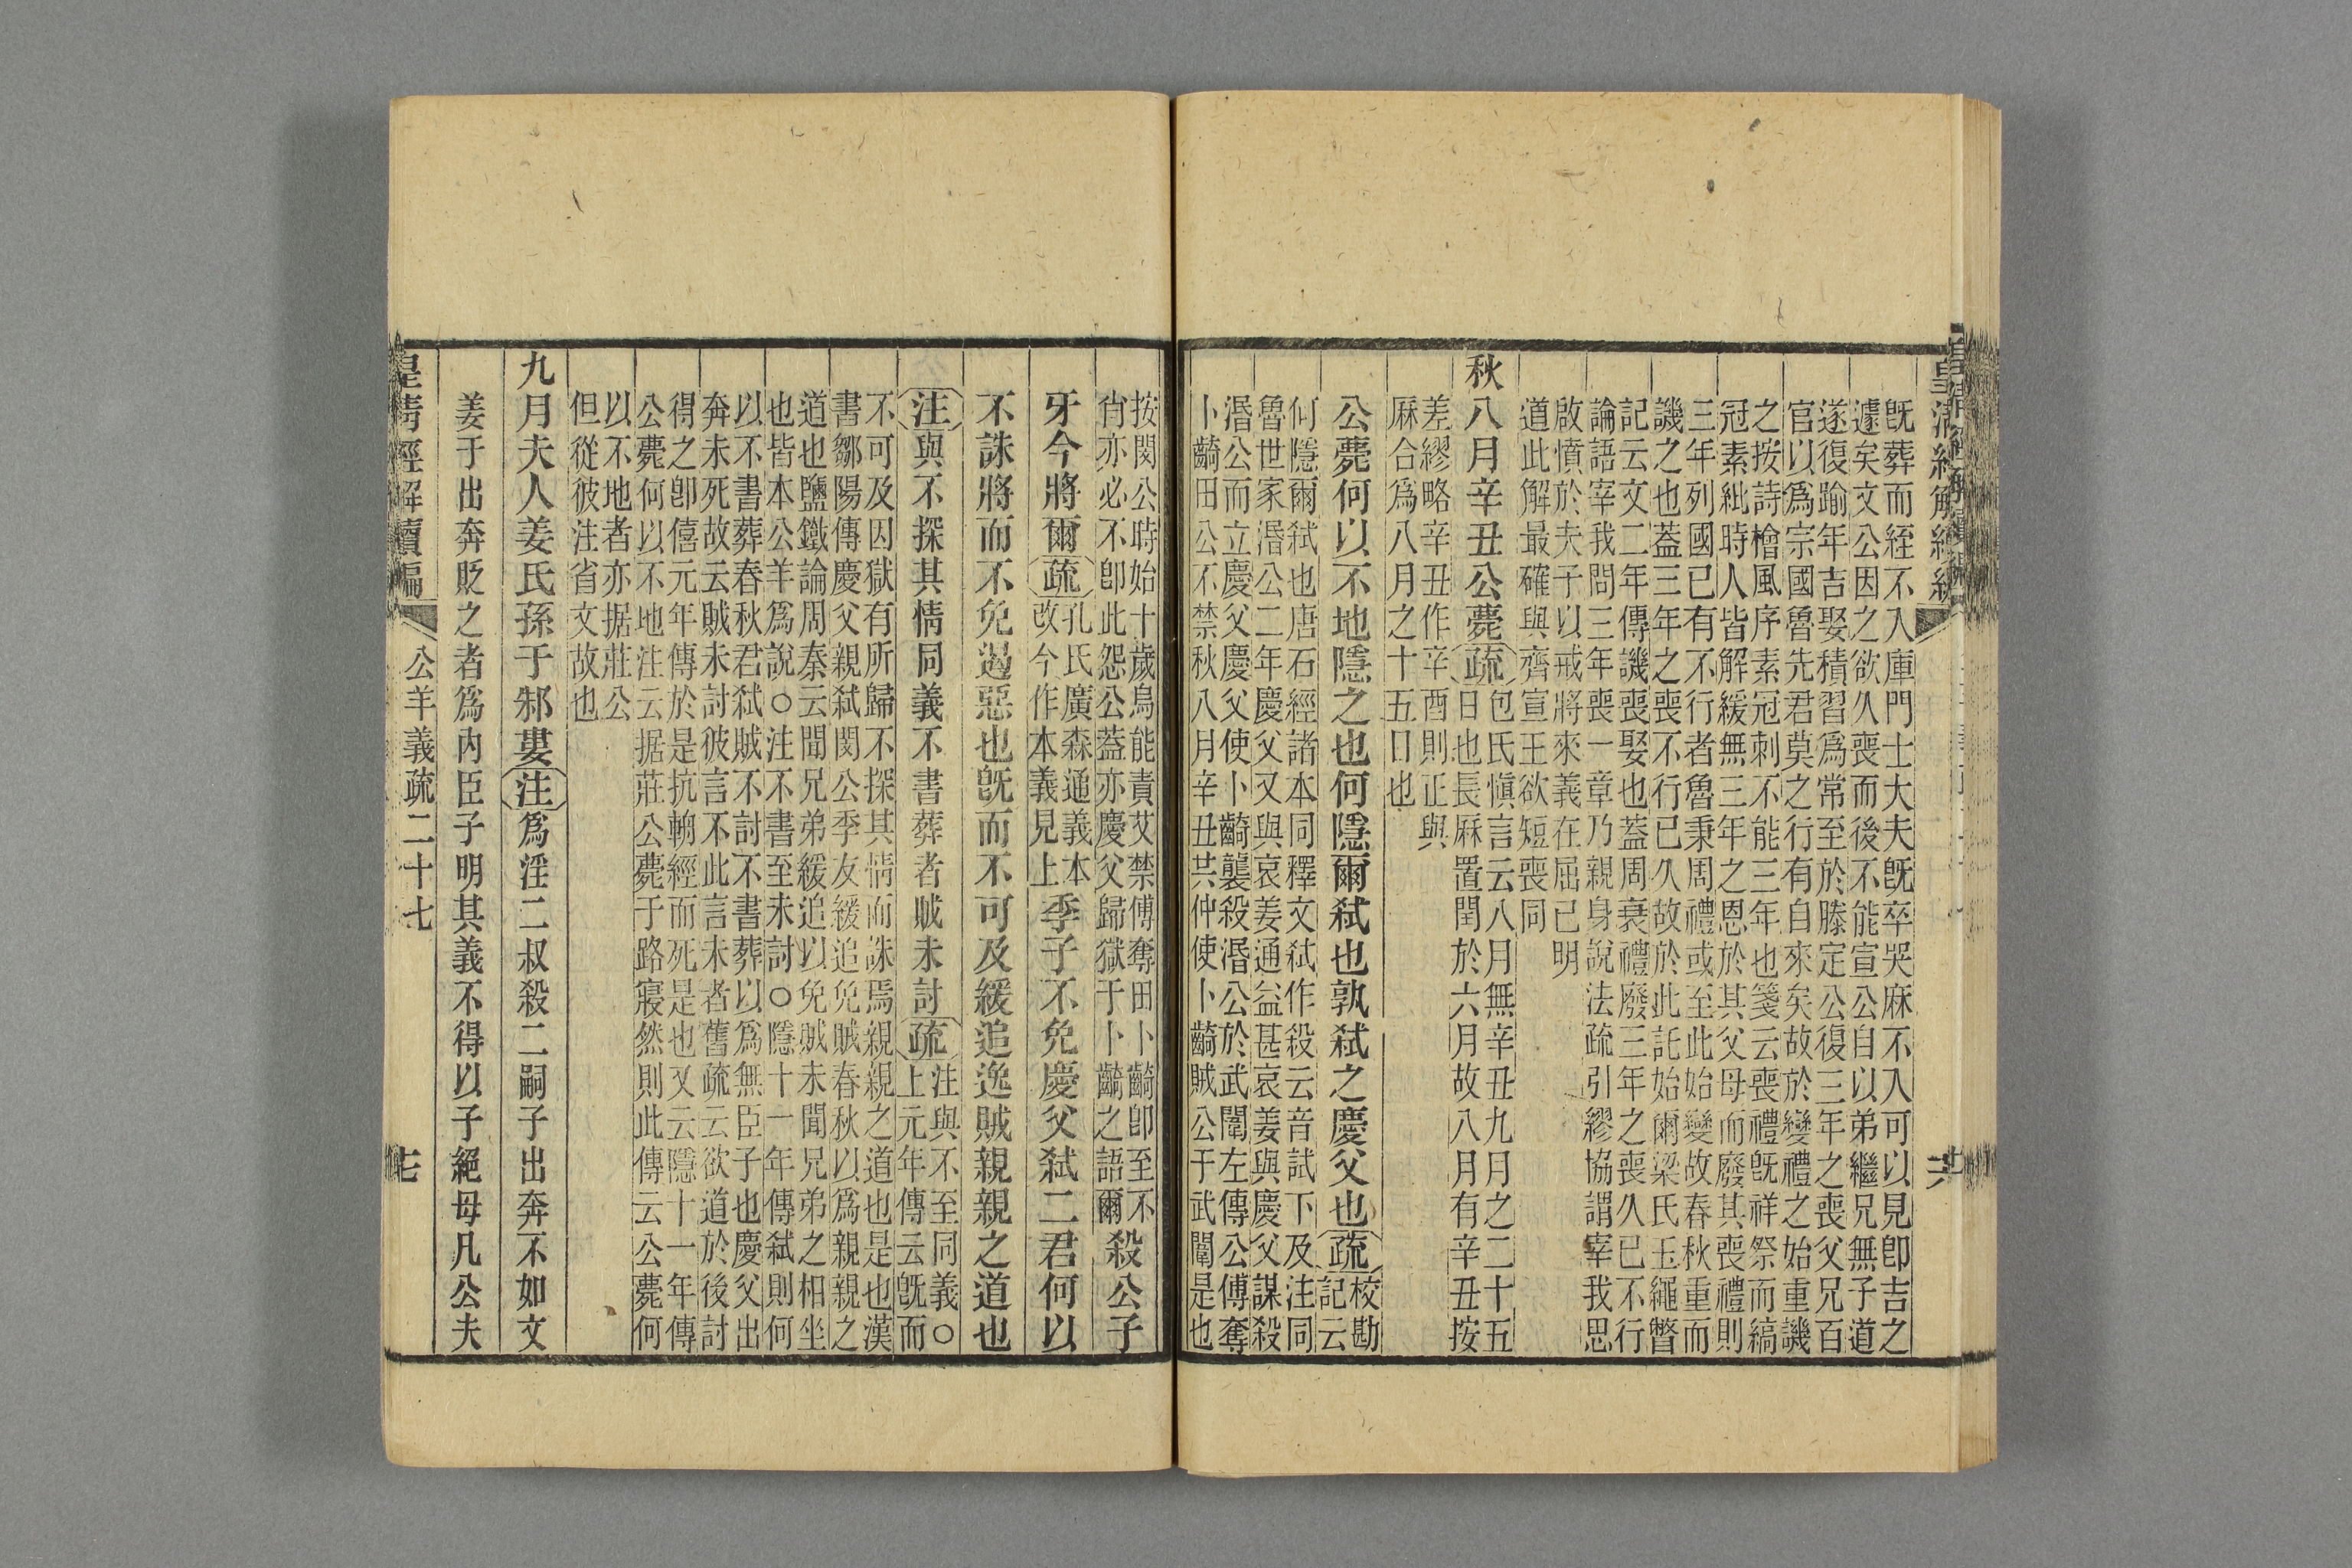 皇清經解續編
既葬而絰不入庫門士大夫既卒哭麻不入可以見卽吉之
遽矣文公因之欲久喪而後不能宣公自以弟繼兄無子道
遂復踰年吉娶積習爲常至於滕定公復三年之喪父兄百
官以爲宗國魯先君莫之行有自來矣故於變禮之始重譏
之按詩檜風序素冠刺不能三年也箋云喪禮既祥祭而縞
冠素紕時人皆解緩無三年之恩於其父母而廢其喪禮則
三年列國已有不行者魯秉周禮或至此始變故春秋重而
譏之也蓋三年之喪不行已久故於此託始爾梁氏玉繩瞥
記云文二年傳譏喪娶也蓋周衰禮廢三年之喪久已不行
論語宰我問三年喪一章乃親身說法疏引繆協謂宰我思
啟憤於夫子以戒將來義在屈已明
道此解最確與齊宣王欲短喪同
秋八月辛丑公薨疏包氏愼言云八月無辛丑九月之二十五
日也長厤置閏於六月故八月有辛丑按
差繆略辛丑作辛酉則正與
厤合爲八月之十五日也
公薨何以不地隱之也何隱爾弒也孰弒之慶父也疏校勘
記云
何隱爾弒也唐石經諸本同釋文弒作殺云音試下及注同
魯世家湣公二年慶父又與哀姜通益甚哀姜與慶父謀殺
湣公而立慶父慶父使卜齮襲殺湣公於武闈左傳公傅奪
卜齮田公不禁秋八月辛丑共仲使卜齮賊公于武闈是也
六
按閔公時始十歲烏能責艾禁傅奪田卜齮卽至不
肖亦必不卽此怨公蓋亦慶父歸獄于卜齮之語爾殺公子
牙今將爾疏孔氏廣森通義本
改今作本義見上季子不免慶父弒二君何以
不誅將而不免遏惡也既而不可及緩追逸賊親親之道也
注與不探其情同義不書葬者賊未討疏注與不至同義○
上元年傳云既而
不可及因獄有所歸不探其情而誅焉親親之道也是也漢
書鄒陽傳慶父親弒閔公季友緩追免賊春秋以爲親親之
道也鹽鐵論周秦云聞兄弟緩追以免賊未聞兄弟之相坐
也皆本公羊爲說○注不書至未討○隱十一年傳弒則何
以不書葬春秋君弒賊不討不書葬以爲無臣子也慶父出
奔未死故云賊未討彼言不此言未者舊疏云欲道於後討
得之卽僖元年傳於是抗輈經而死是也又云隱十一年傳
公薨何以不地注云据莊公薨于路寢然則此傳云公薨何
以不地者亦据莊公
但從彼注省文故也
九月夫人姜氏孫于邾婁注爲淫二叔殺二嗣子出奔不如文
姜于出奔貶之者爲內臣子明其義不得以子絕母凡公夫
皇淸經解續編
公羊義疏二十七
七